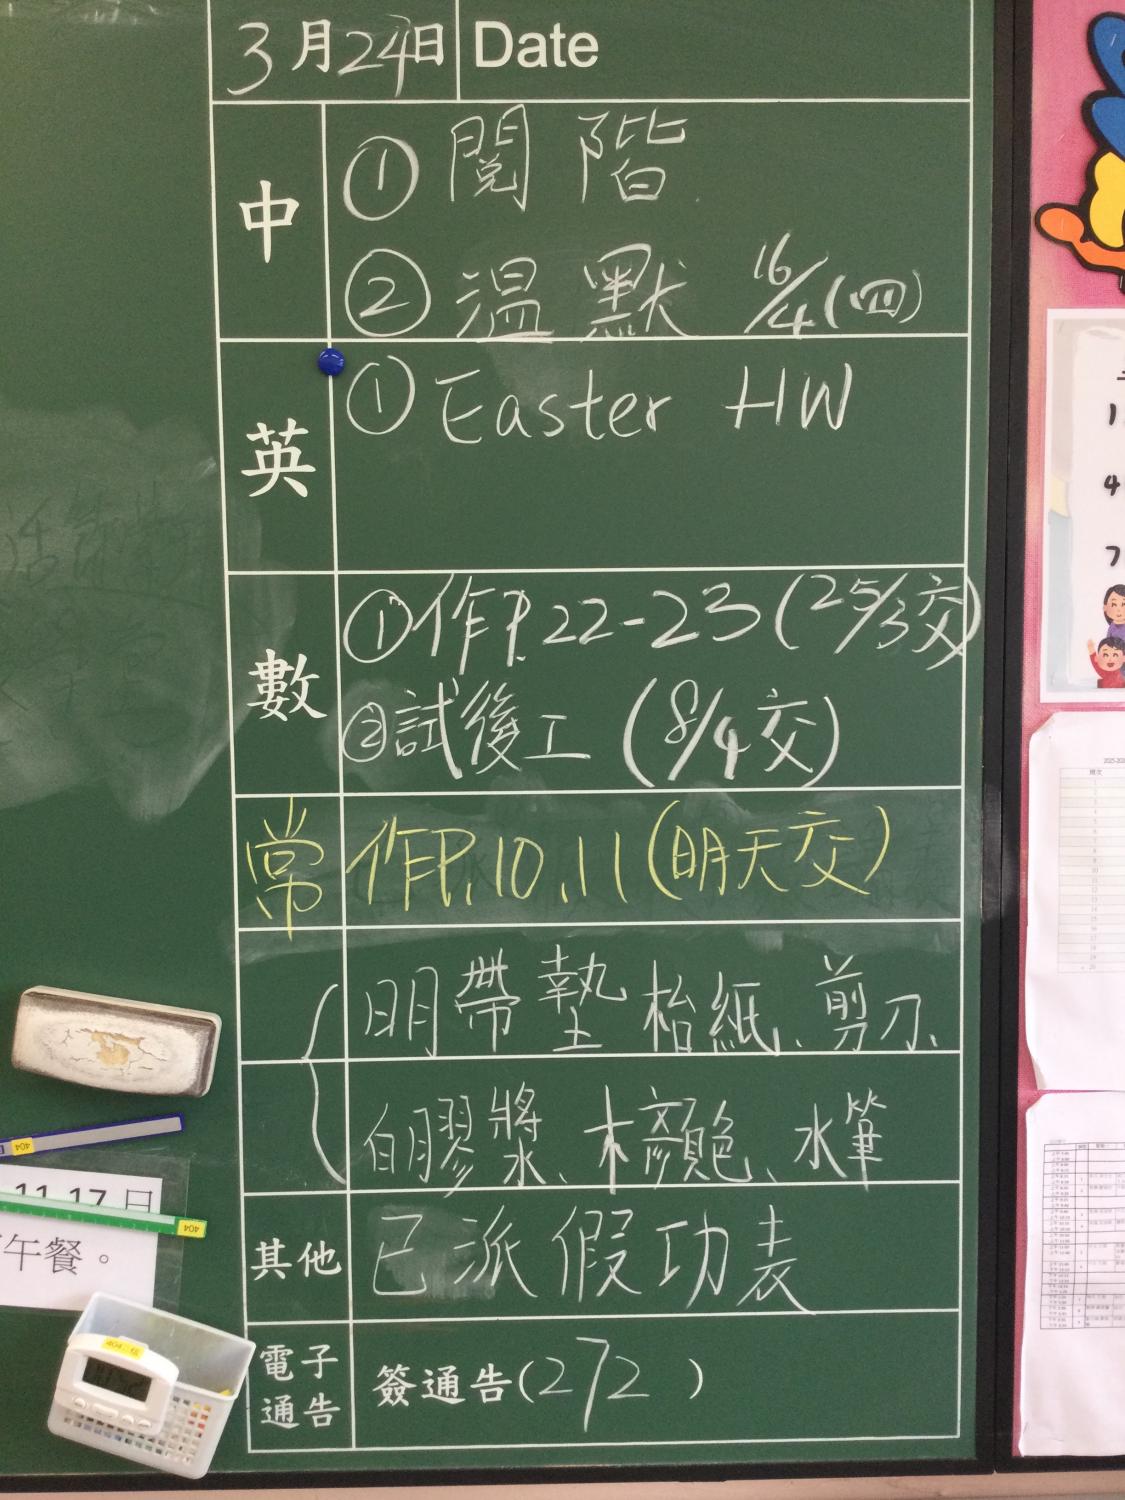 3月24日 Date
中
① 閱階
② 溫默 16/4(四)
英
① Easter HW
數
①作P.22-23(25/3交)
②試後工(8/4交)
常 作P.10,11(明天交)
明帶墊枱紙、剪刀、
白膠漿、木顏色、水筆
其他 已派假功表
電子通告 簽通告(272)
11-17日
午餐。
404
404
404